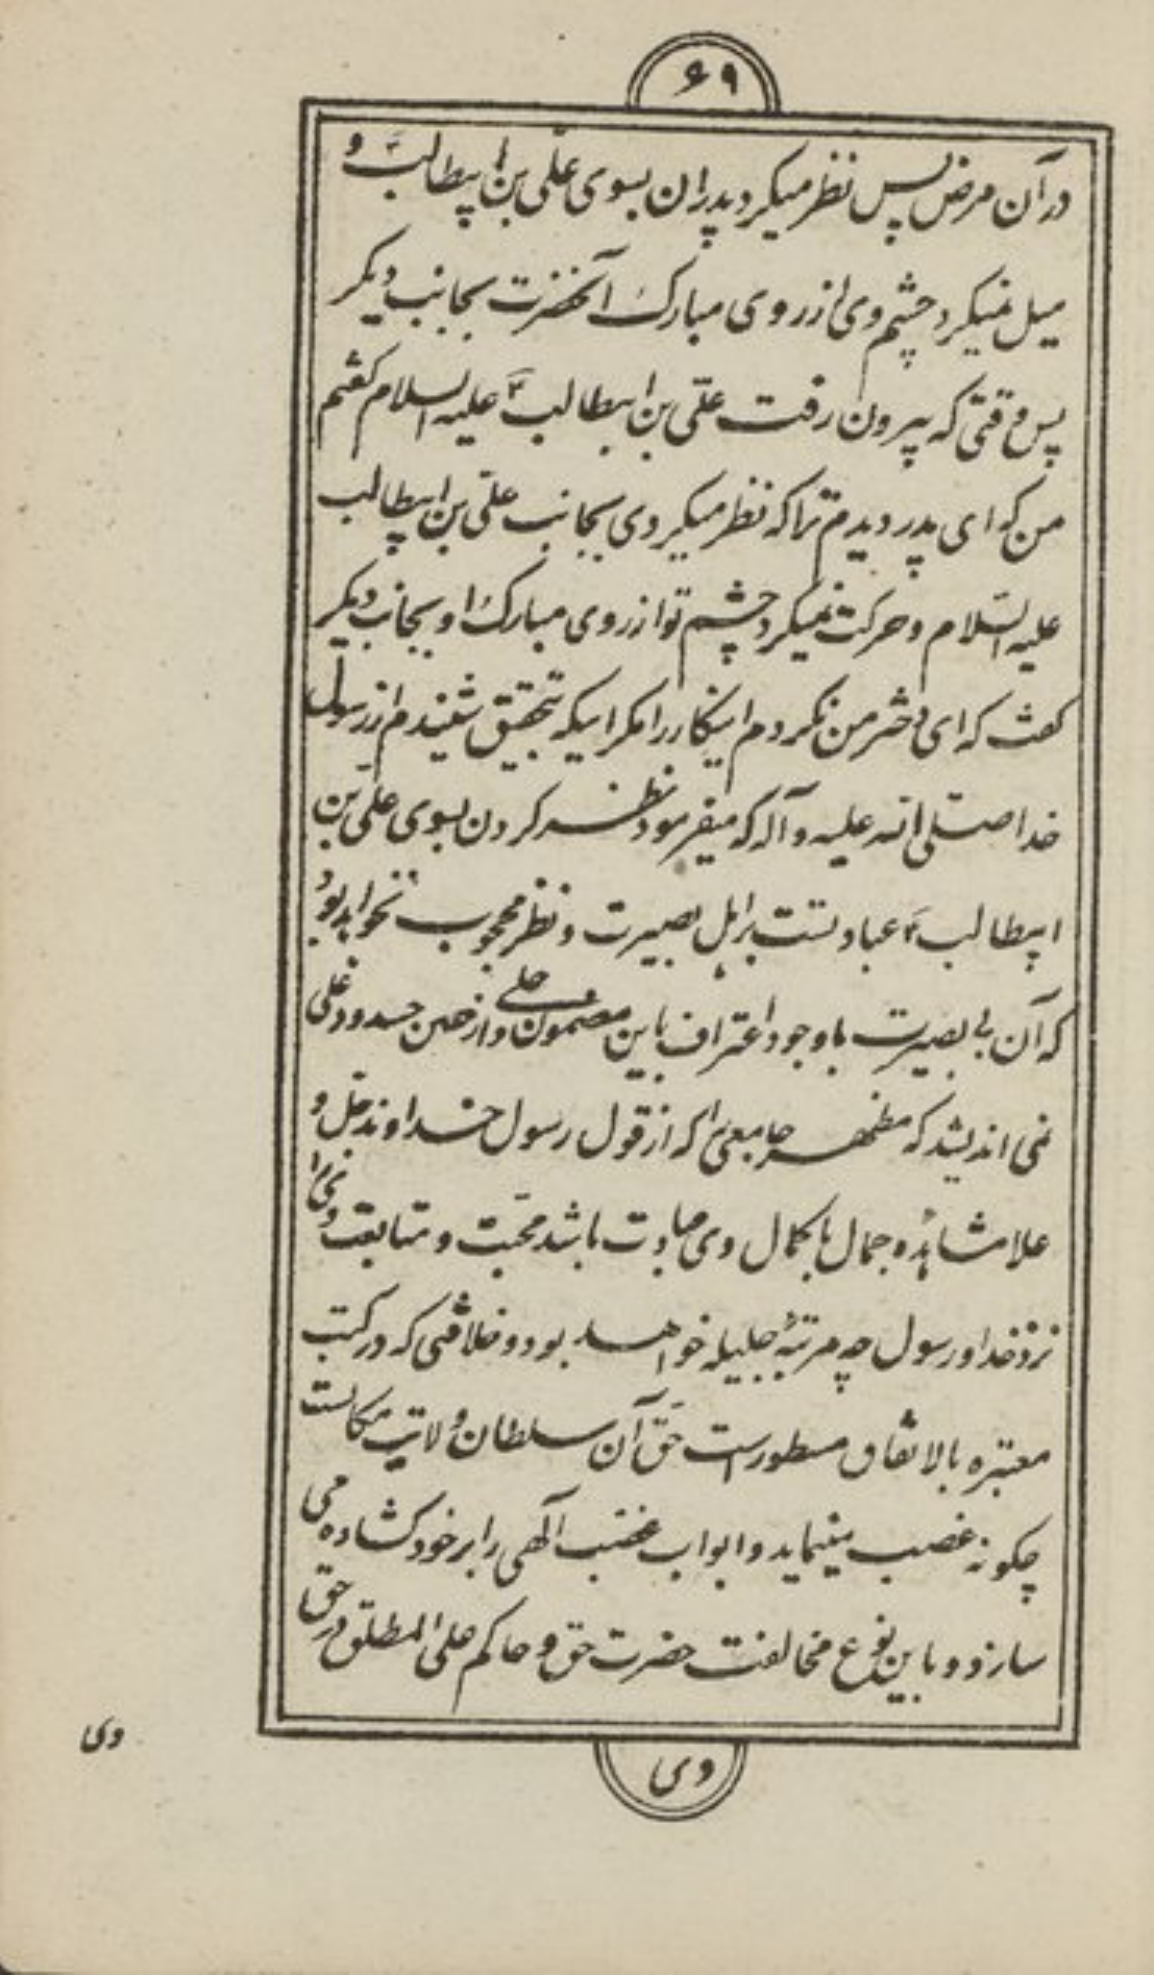 ۶۹
در آن مرض پس نظر میکرد پدر ان بسوی علی بن ابیطالب ع و
میل نمیکرد چشم وی از روی مبارک آنحضرت بجانب دیکر
پس وقتی که بیرون رفت علی بن ابیطالب ع علیه السلام کفتم
من که ای پدر دیدم ترا که نظر میکردی بجانب علی بن ابیطالب
علیه السلام و حرکت نمیکرد چشم تو از روی مبارک او بجانب دیکر
کفت که ای دختر من نکردم اینکار را مکر اینکه بتحقیق شنیدم از رسول
خدا صلی الله علیه و آله که میفرمود نظر کردن بسوی علی بن
ابیطالب ع عبادتست بر اهل بصیرت و نظر محجوب نخواهد بود
که آن بی بصیرت با وجود اعتراف باین مضمون جلی و از حسد و دغلی
نمی اندیشد که مظهر جامعی را که از قول رسول خداوند جل و
علا مشاهده جمال با کمال وی عبادت باشد محبت و متابعت ویرا
نزد خدا و رسول چه مرتبه جلیله خواهد بود و خلافتی که در کتب
معتبره بالاتفاق مسطور است حق آن سلطان ولایت مکانست
چکونه غصب مینماید و ابواب غضب الهی را بر خود کشاده می
سازد و باین نوع مخالفت حضرت حق و حاکم علی المطلق در حق
وی
وی